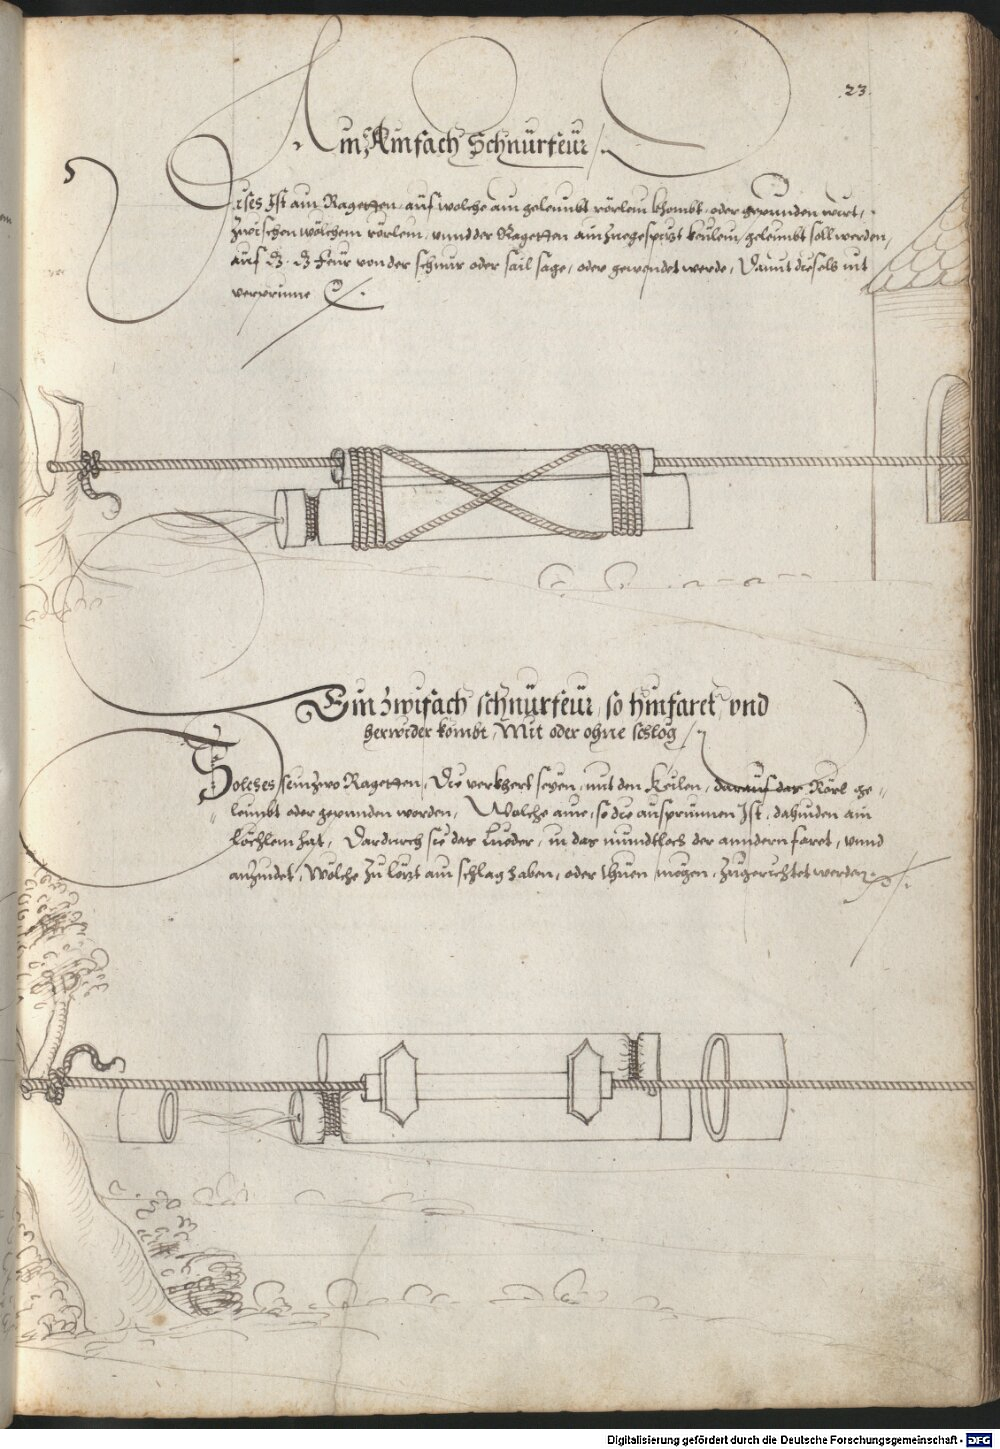 23.
Ain Ainfach Schnürfeür
Dises Ist ain Ragetten, auf wolche ain geleimbt rörlein khombt, oder gepunden wirt,
Zwischen wölchem rörlein, unnd der Ragetten ain Zuegespizt keulein, geleimbt soll werden,
auf das das Feur von der schnur oder sail sage, oder gewendet werde, Damit dieselb nit
verprinne
Ein zwifach schnürfeür, so hinfaret, vnd
herwider kombt, Mit oder ohne schlög
Solches sein zwo Ragetten, Die verkhert seyen, mit den Keilen, darauf das Rörl ge-
leimbt oder gepunden worden, Wolche aine, so die ausprunnen Ist, dahinden ain
löchlein hat, Dardurch sie das Lueder, in das mundtloch der anndern faret, vnnd
anzindet, Wölche Zu lötzt ain schlag haben, oder thuen mögen, Zugerichtet werden.
Digitalisierung gefördert durch die Deutsche Forschungsgemeinschaft - DFG